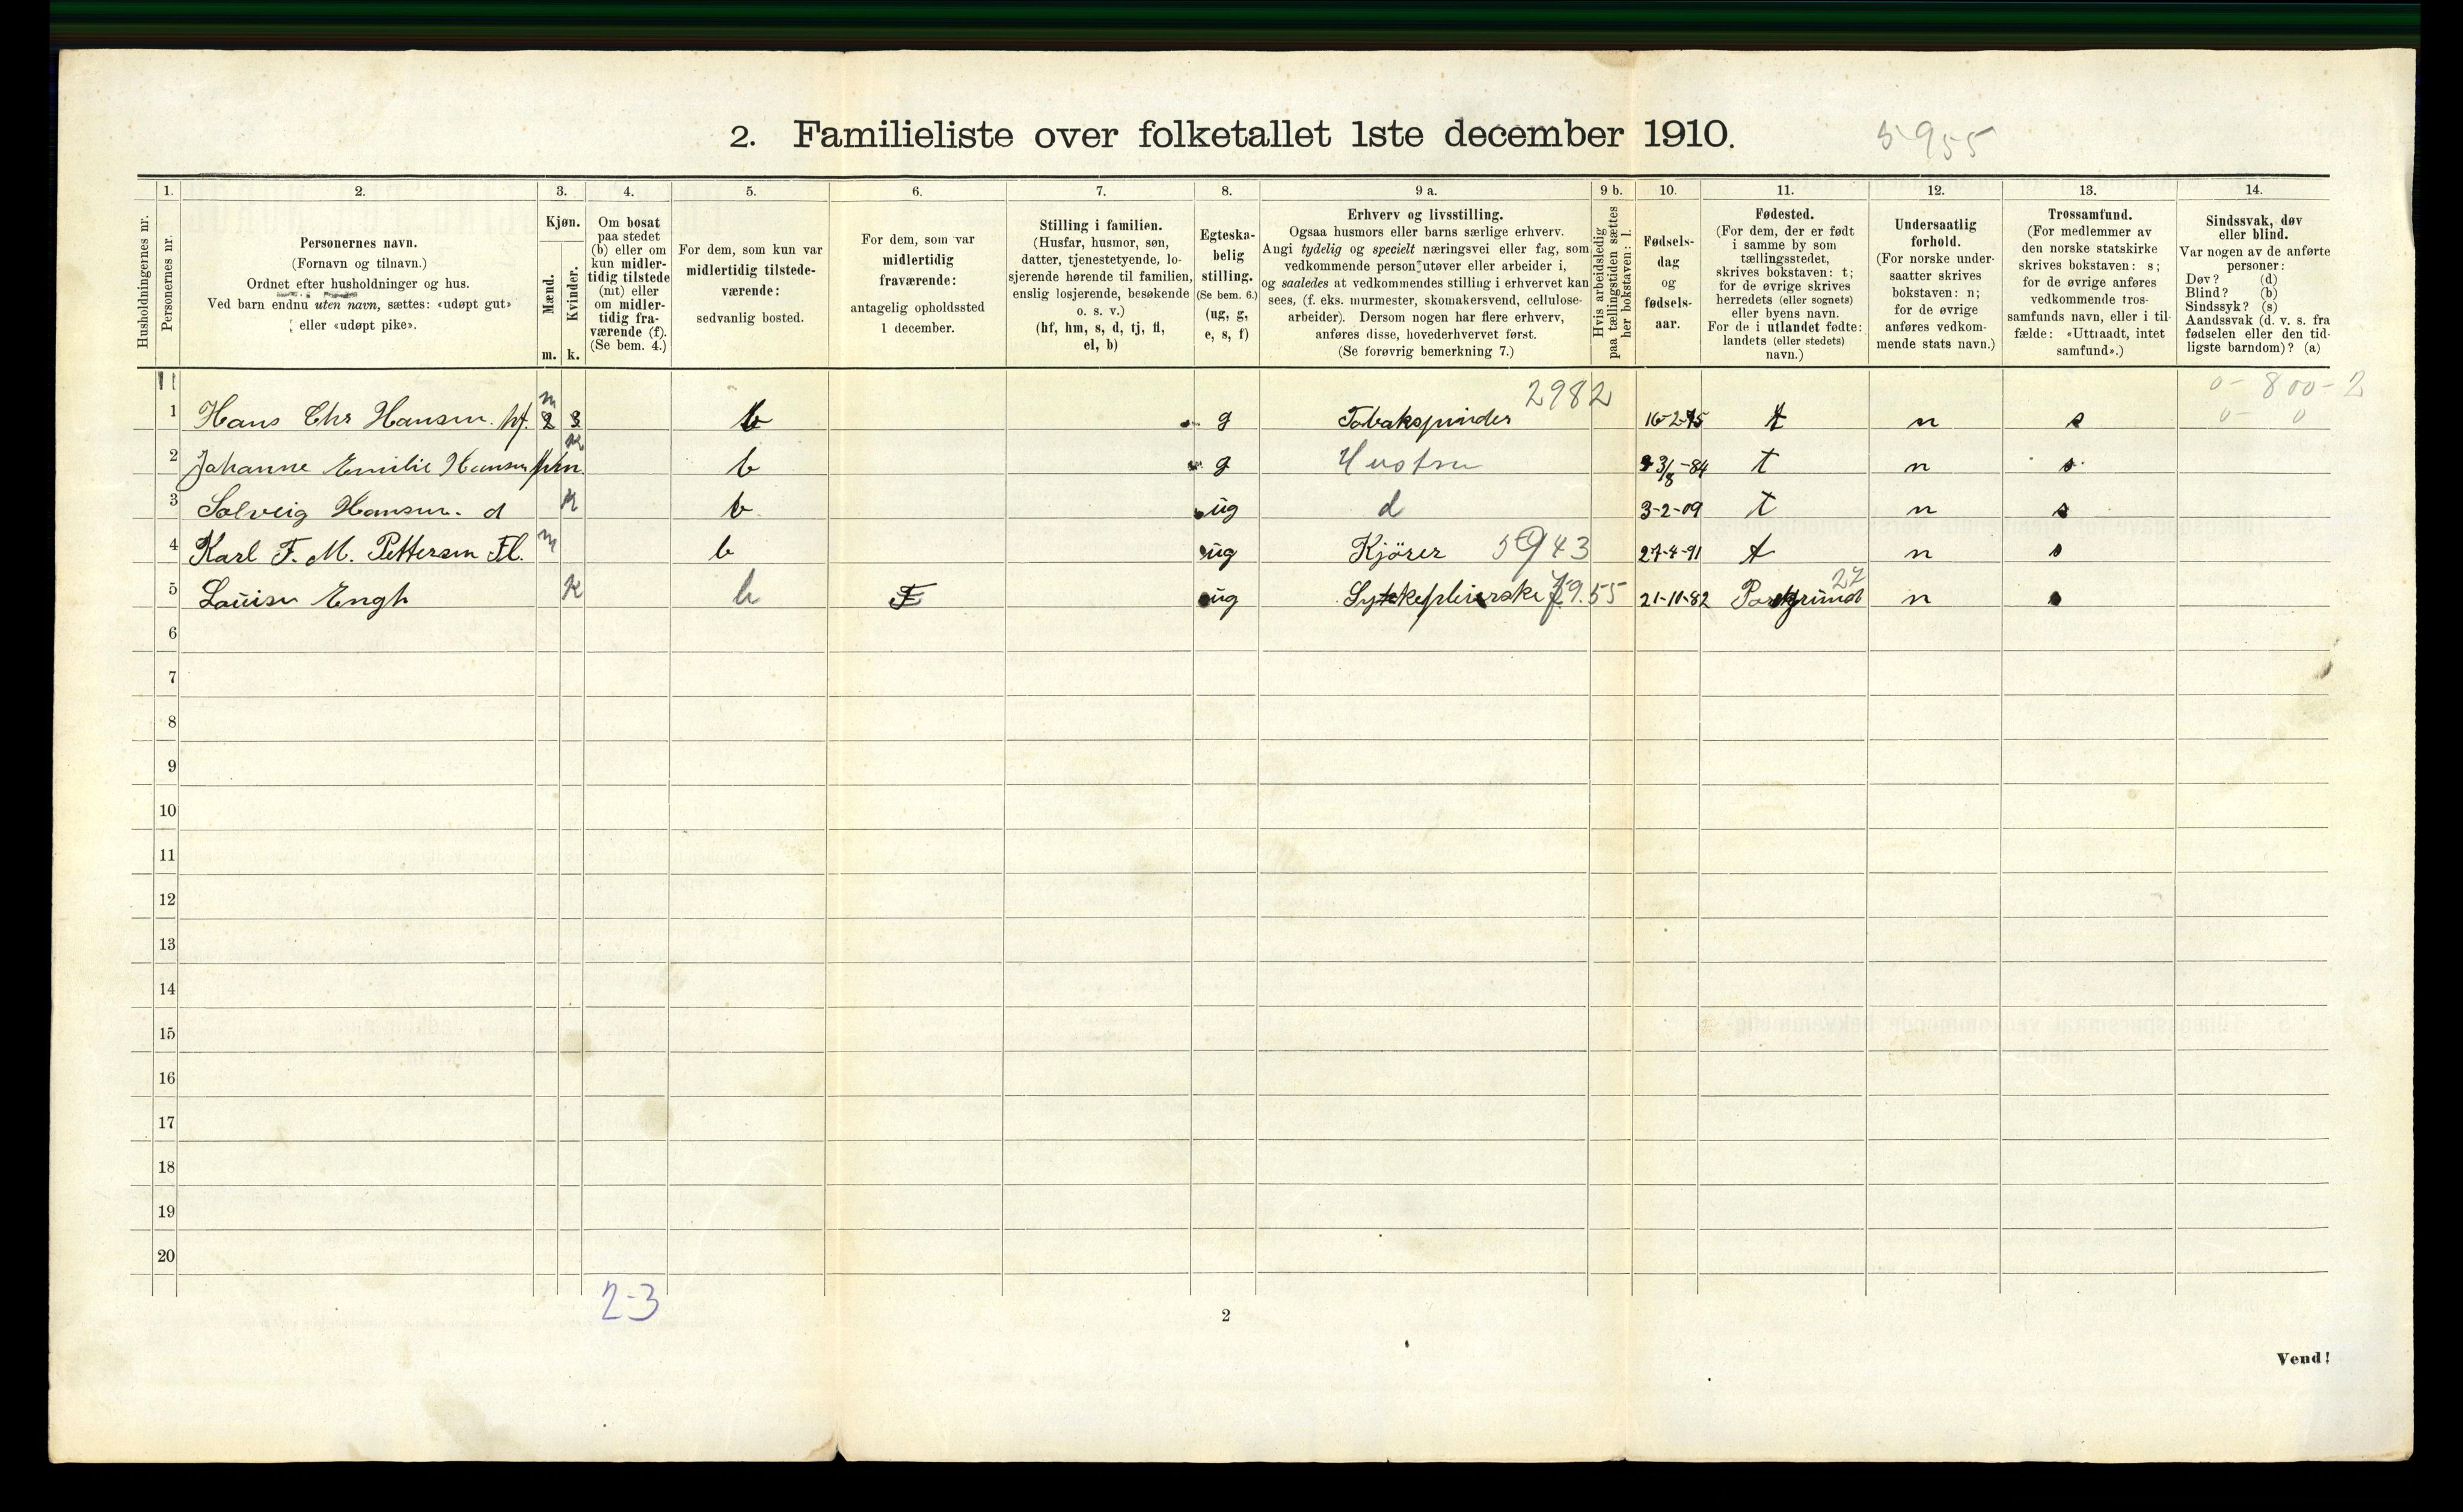 2. Familieliste over folketallet 1ste december 1910.
5955
1. 2. 3. 4. 5. 6. 7. 8. 9 a. 9 b. 10. 11. 12. 13. 14.
Husholdningernes nr.
Personernes nr.
Personernes navn.
(Fornavn og tilnavn.)
Ordnet efter husholdninger og hus.
Ved barn endnu uten navn, sættes: «udøpt gut»
eller «udøpt pike».
Kjøn.
Mænd.
Kvinder.
m. k.
Om bosat
paa stedet
(b) eller om
kun midler-
tidig tilstede
(mt) eller
om midler-
tidig fra-
værende (f).
(Se bem. 4.)
For dem, som kun var
midlertidig tilstede-
værende:
sedvanlig bosted.
For dem, som var
midlertidig
fraværende:
antagelig opholdssted
1 december.
Stilling i familien.
(Husfar, husmor, søn,
datter, tjenestetyende, lo-
sjerende hørende til familien,
enslig losjerende, besøkende
o. s. v.)
(hf, hm, s, d, tj, fl,
el, b)
Egteska-
belig
stilling.
(Se bem. 6.)
(ug, g,
e, s, f)
Erhverv og livsstilling.
Ogsaa husmors eller barns særlige erhverv.
Angi tydelig og specielt næringsvei eller fag, som
vedkommende person utøver eller arbeider i,
og saaledes at vedkommendes stilling i erhvervet kan
sees, (f. eks. murmester, skomakersvend, cellulose-
arbeider). Dersom nogen har flere erhverv,
anføres disse, hovederhvervet først.
(Se forøvrig bemerkning 7.)
Hvis arbeidsledig
paa tællingstiden sættes
her bokstaven: l.
Fødsels-
dag
og
fødsels-
aar.
Fødested.
(For dem, der er født
i samme by som
tællingsstedet,
skrives bokstaven: t;
for de øvrige skrives
herredets (eller sognets)
eller byens navn.
For de i utlandet fødte:
landets (eller stedets)
navn.)
Undersaatlig
forhold.
(For norske under-
saatter skrives
bokstaven: n;
for de øvrige
anføres vedkom-
mende stats navn.)
Trossamfund.
(For medlemmer av
den norske statskirke
skrives bokstaven: s;
for de øvrige anføres
vedkommende tros-
samfunds navn, eller i til-
fælde: «Uttraadt, intet
samfund».)
Sindssvak, døv
eller blind.
Var nogen av de anførte
personer:
Døv? (d)
Blind? (b)
Sindssyk? (s)
Aandssvak (d. v. s. fra
fødselen eller den tid-
ligste barndom)? (a)
2982 0- 800-2
1 Hans Chr Hansen. hf. m 2 3 b g Tobakspinder 16-2-75 t n s 0- 0
2 Johanne Emilie Hansen hm k b g Hustru 3/8-84 t n s
3 Solveig Hansen. d k b ug d 3-2-09 t n s
4 Karl F. M. Pettersen Fl. m b ug Kjörer 5943 27-4-91 t n s
27
5 Louise Engh k b F ug Sykepleierske 59.55 21-10-82 Porsgrund n s
6
7
8
9
10
11
12
13
14
15
16
17
18
19
20
2-3
2
Vend!